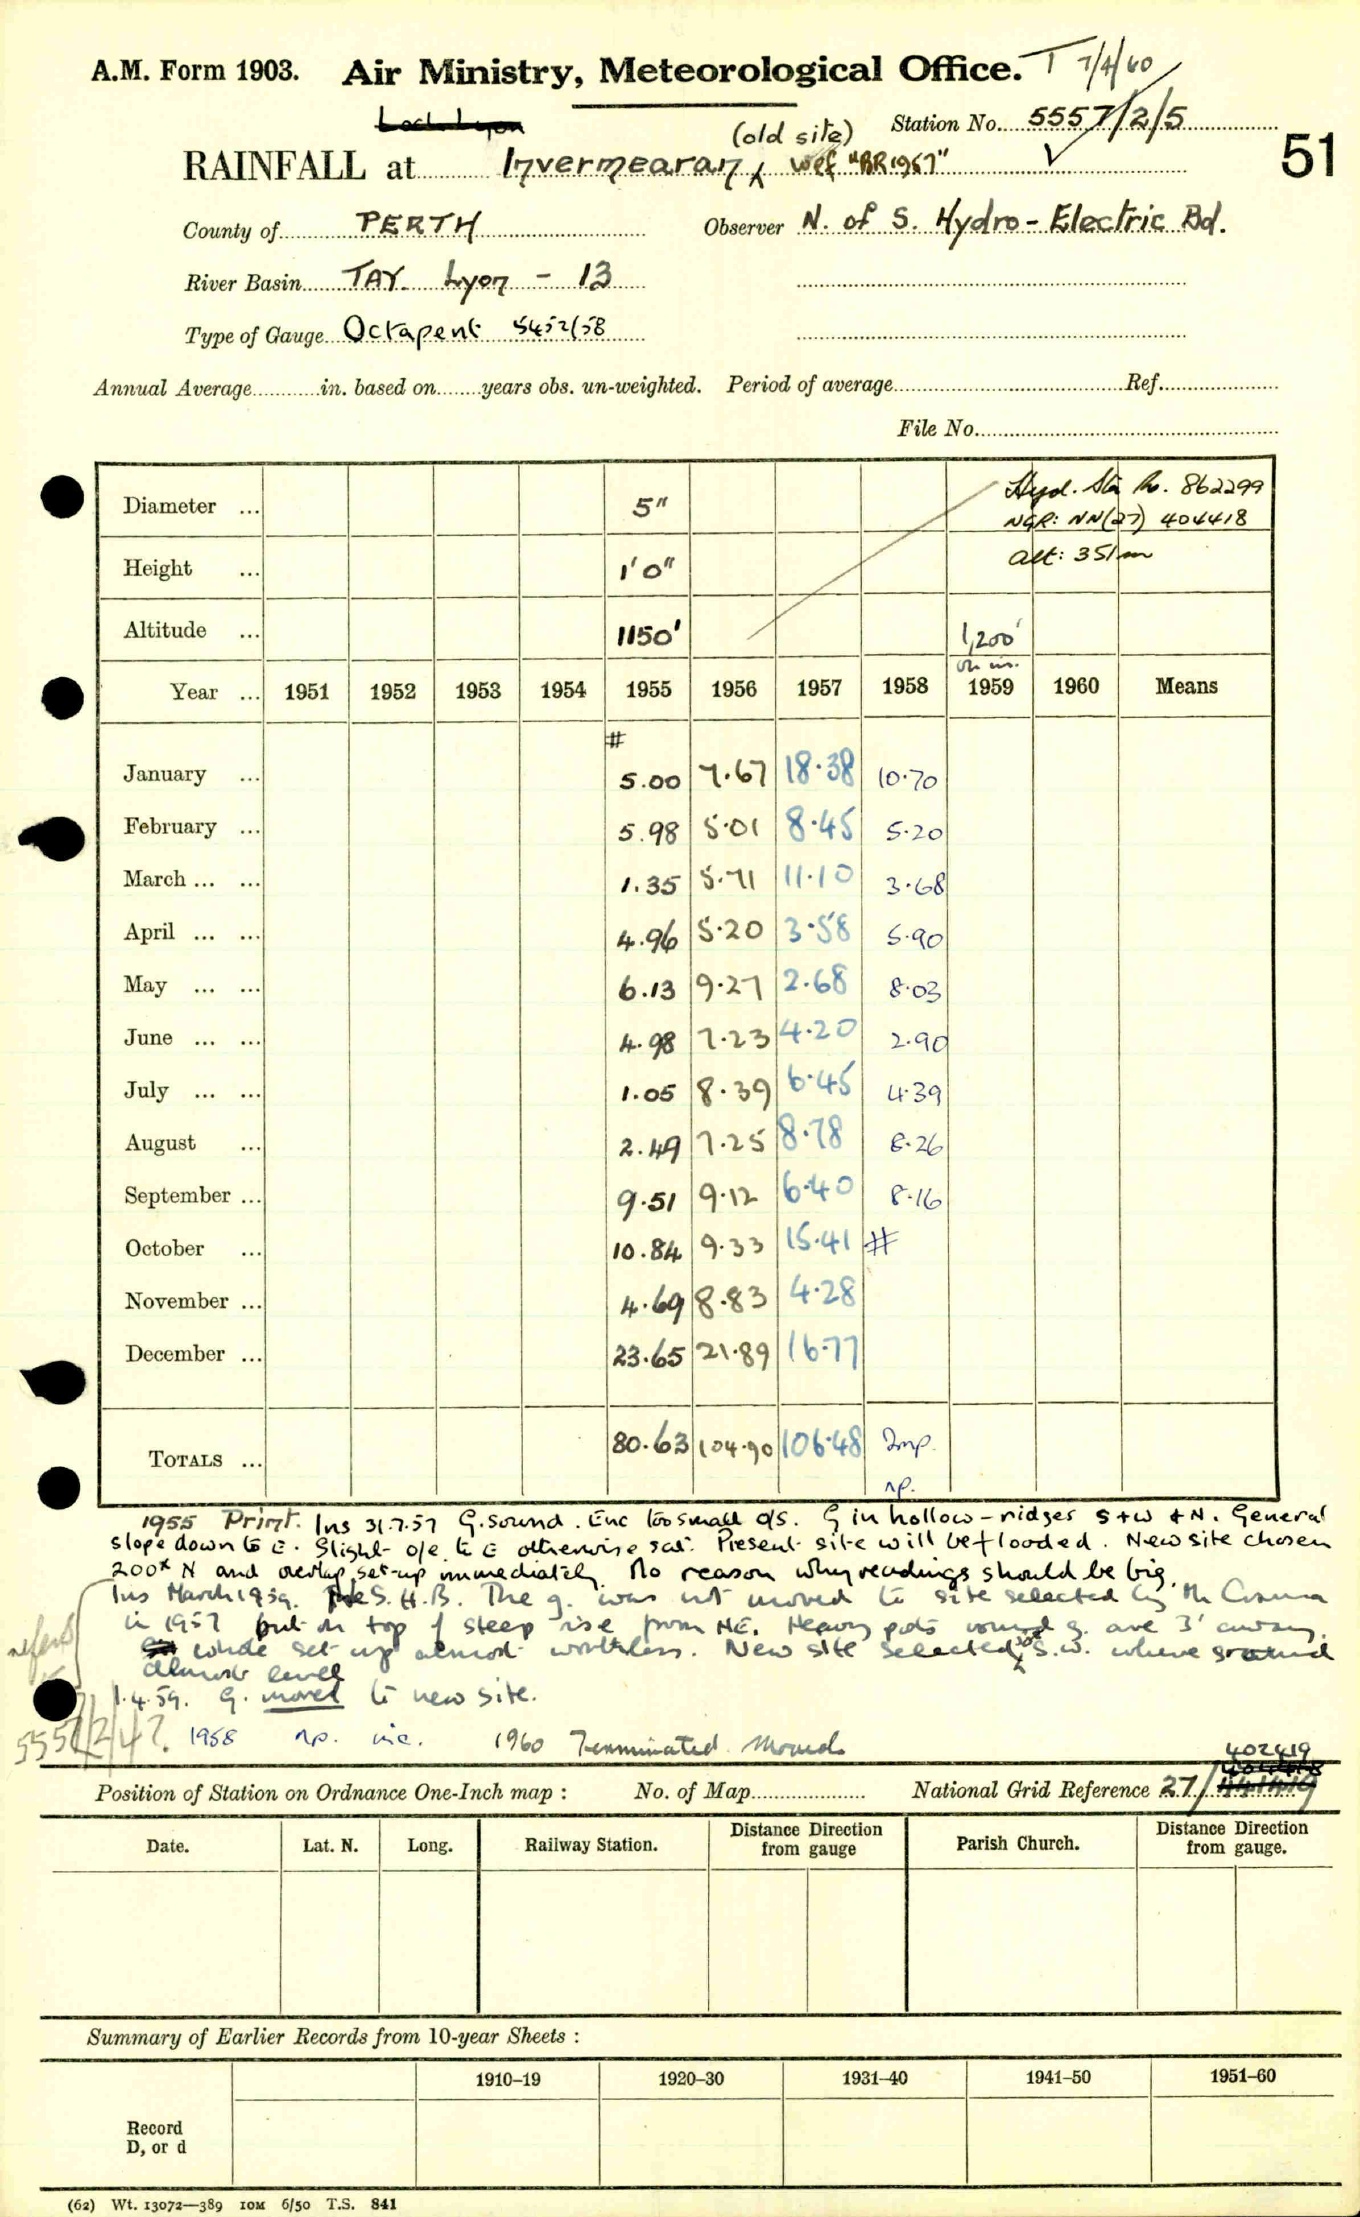 A.M. Form 1903. Air Ministry, Meteorological Office. T 7/4/60
Loch Lyon
(old site) Station No. 5557/2/5
RAINFALL at Invermearan wef "BR1967" 51
County of PERTH Observer N. of S. Hydro-Electric Bd.
River Basin TAY. Lyon - 13
Type of Gauge Octapent 5452/58
Annual Average in. based on years obs. un-weighted. Period of average Ref.
File No.
Diameter ... 5" Hyd. Sta No. 862299
NGR: NN(27) 404418
Height ... 1'0" alt: 351m
Altitude ... 1150' 1,200'
on ins.
Year ... 1951 1952 1953 1954 1955 1956 1957 1958 1959 1960 Means
#
January ... 5.00 7.67 18.38 10.70
February ... 5.98 5.01 8.45 5.20
March ... ... 1.35 5.71 11.10 3.68
April ... ... 4.96 5.20 3.58 5.90
May ... ... 6.13 9.27 2.68 8.03
June ... ... 4.98 7.23 4.20 2.90
July ... ... 1.05 8.39 6.45 4.39
August ... 2.49 7.25 8.78 8.26
September ... 9.51 9.12 6.40 8.16
October ... 10.84 9.33 15.41 #
November ... 4.69 8.83 4.28
December ... 23.65 21.89 16.77
TOTALS ... 80.63 104.90 106.48 Imp.
np.
1955 Print. Ins 31.7.57 G. sound. Enc too small o/s. G in hollow - ridges S+W +N. General
slope down to E. Slight o/e to E otherwise sat. Present site will be flooded. New site chosen
200x N and overlap set-up immediately. No reason why readings should be big.
Ins March 1959. N.S.H.B. The g. was not moved to site selected by Mr
in 1957 but on top of steep rise from NE. Heavy pots round g. are 3' away.
whole set up almost worthless. New site selected S.W. where ground
almost level
1.4.59. G. moved to new site.
5557/2/4?. 1958 np. inc. 1960 Terminated. Moved
402419
Position of Station on Ordnance One-Inch map : No. of Map National Grid Reference 27/
Date. Lat. N. Long. Railway Station. Distance Direction from gauge Parish Church. Distance Direction from gauge.
Summary of Earlier Records from 10-year Sheets :
1910–19 1920–30 1931–40 1941–50 1951–60
Record
D, or d
(62) Wt. 13072—389 10M 6/50 T.S. 841